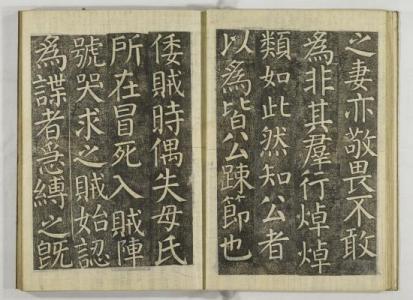 之妻亦敬畏不敢
為非其羣行焯焯
類如此然知公者
以為皆公踈節也
倭賊時偶失母氏
所在冒死入賊陣
號哭求之賊始認
為諜者急縛之旣